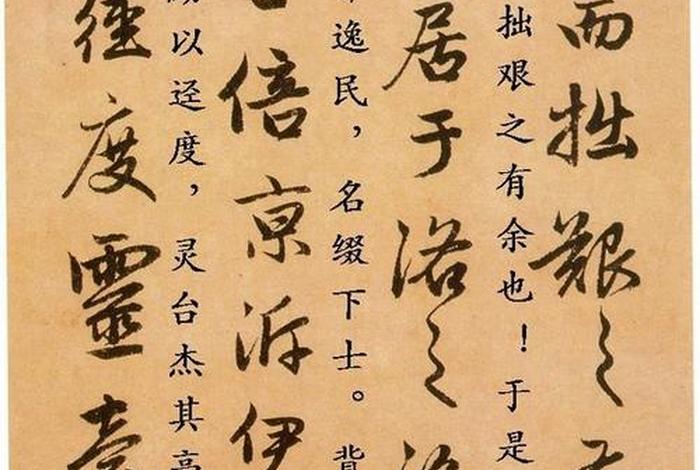 而拙艱之
拙艰之有余也！于是
居于洛之
逸民，名缀下士。背
倍京泝伊
以迳度，灵台杰其高
徑度靈臺